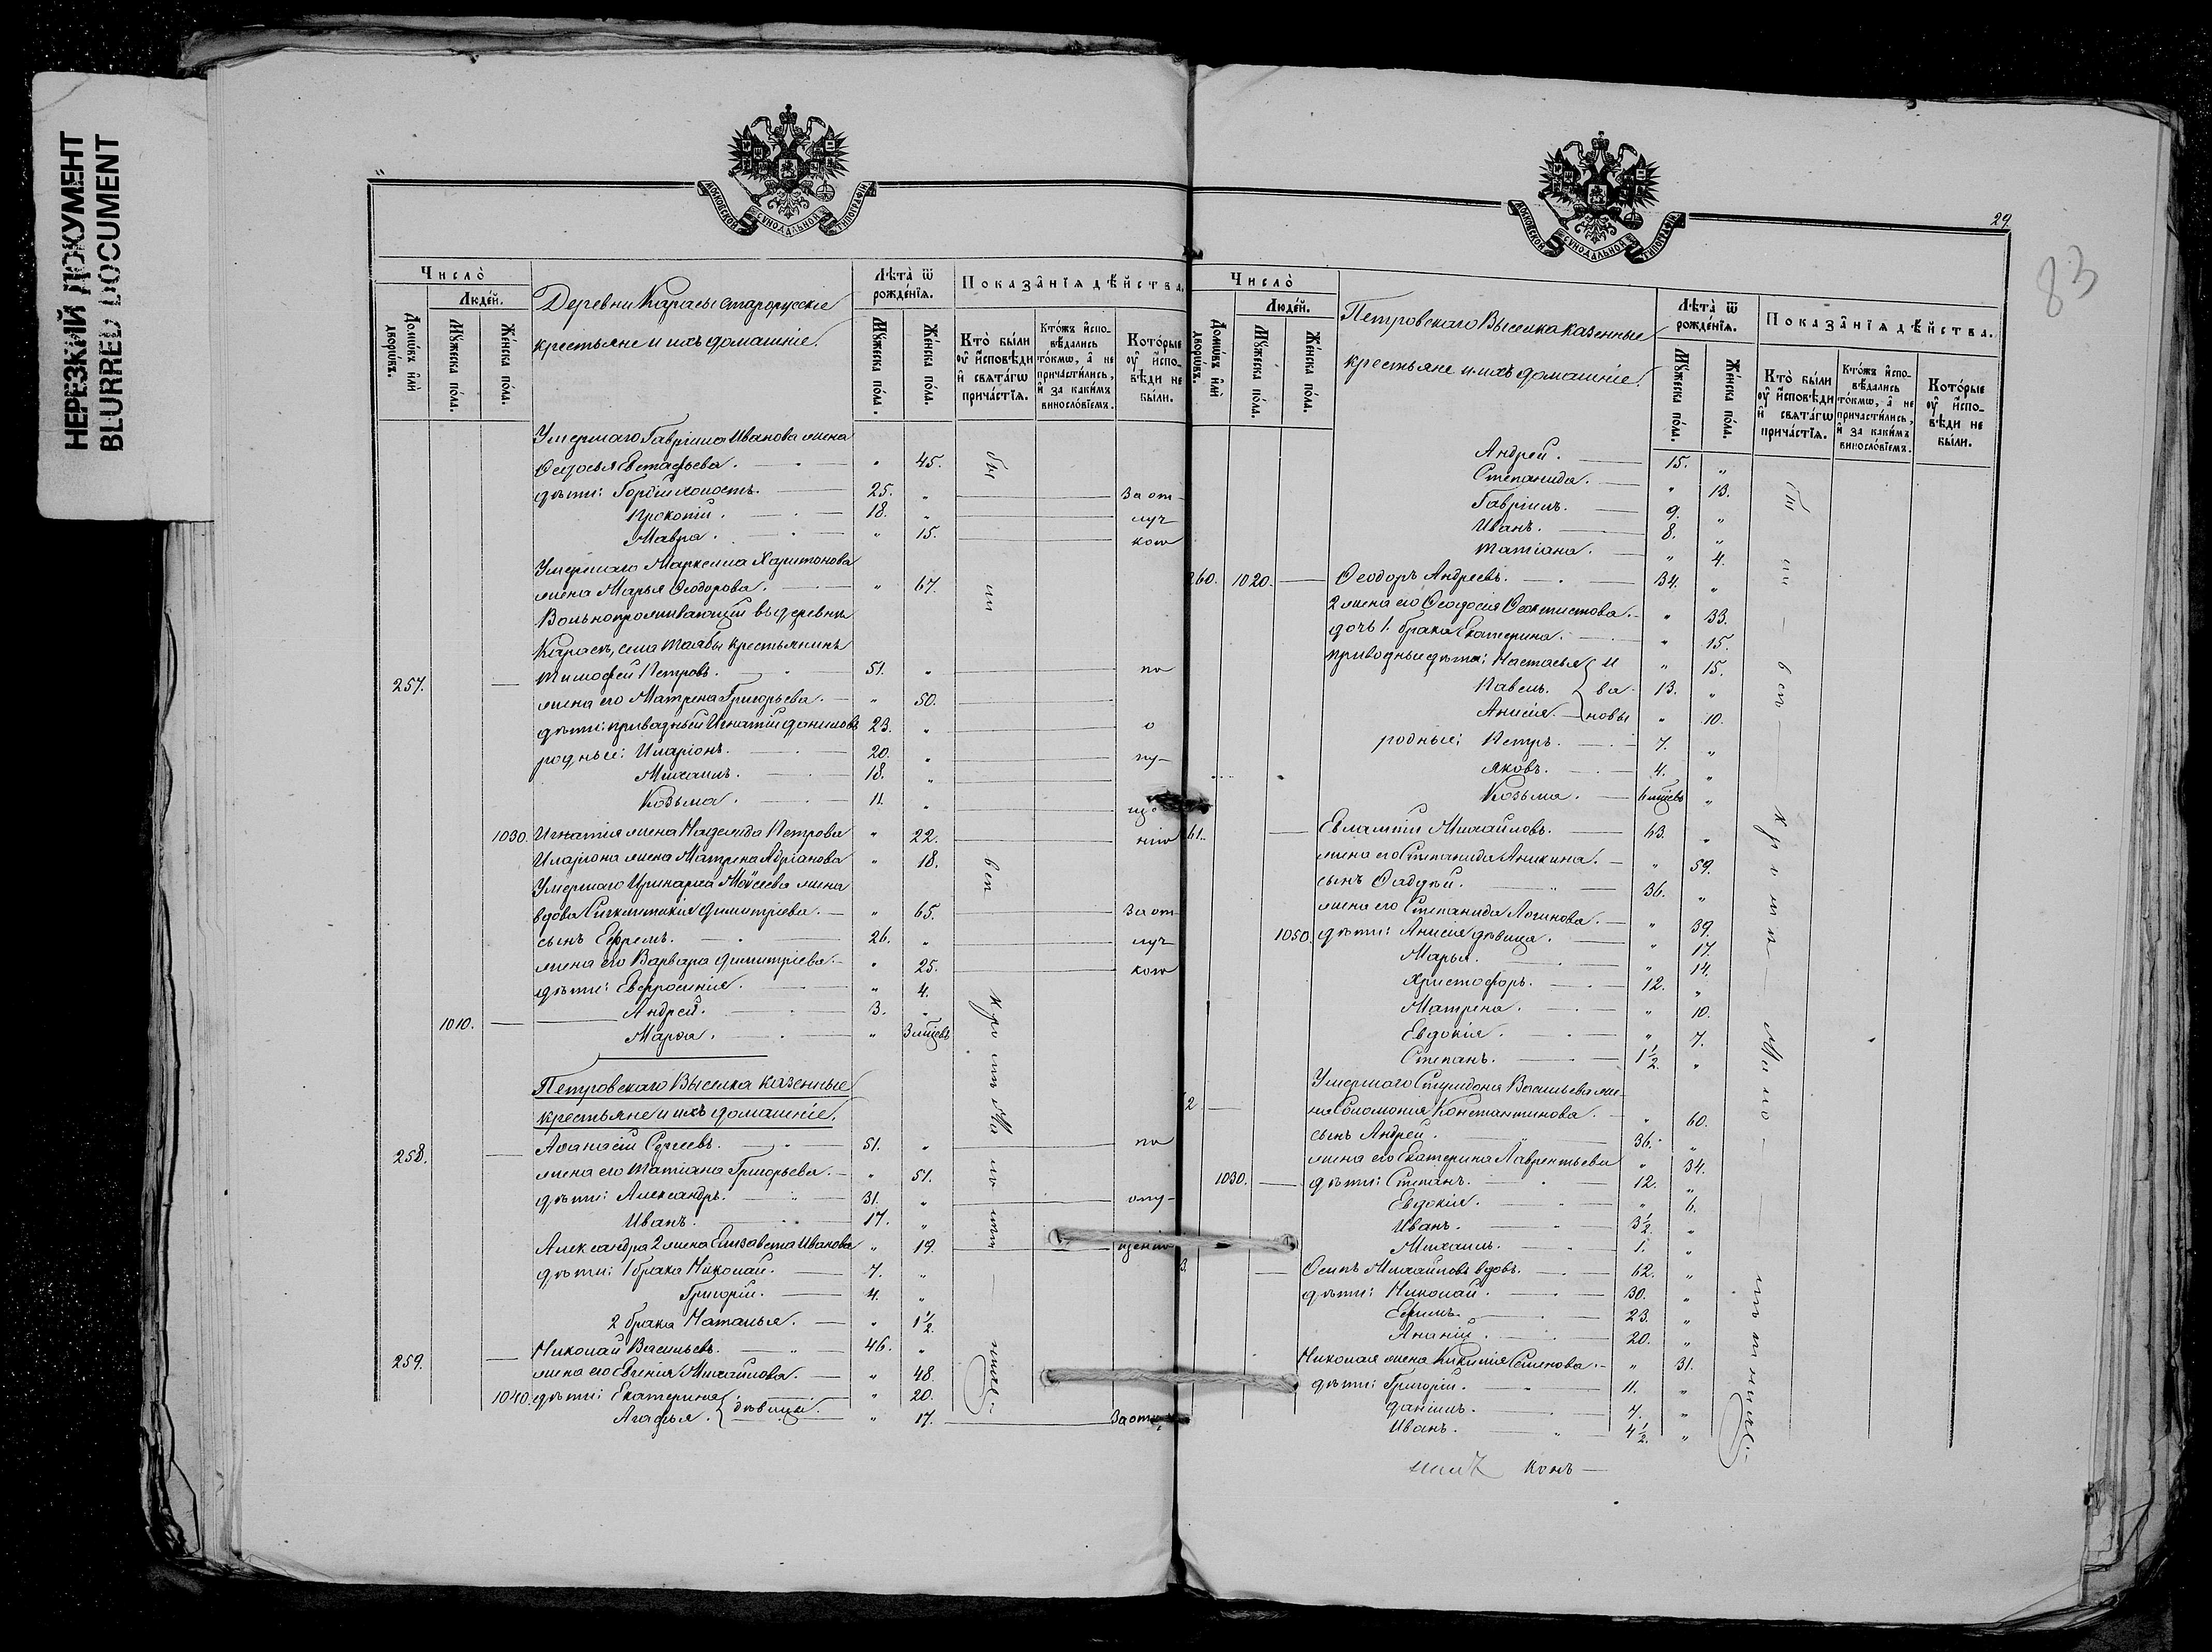 НЕРЕЗКИЙ ДОКУМЕНТ
BLURRED DOCUMENT
МОСКОВСКОЙ СѴНОДАЛЬНОЙ ТИПОГРАФІИ
Число̀
Людéй.
Домѡ́въ и҆лѝ дворѡ́въ.
Мꙋ́жеска по́ла.
Же́нска по́ла.
Деревни Карасы старорусские
крестьяне и ихъ домашніе.
Лѣта̀ ѿ рожде́нїѧ.
Мꙋ́жеска по́ла.
Же́нска по́ла.
Показа̑нїѧ дѣ́йства.
Кто̀ бы́ли оу҆ и҆сповѣди и҆ свята́гѡ прича́стїѧ.
Кто́жъ и҆спо-вѣ́дались то́кмѡ, а҆ не причасти́лись, и҆ за каки́мъ винослѡ́вїемъ.
Кото́рые оу҆ и҆спо-вѣди не бы́ли.
Умершаго Гавріила Иванова жена
Ѳедосья Евстафьева. " 45.
дѣти: Гордій холостъ. 25. " За от-
Прокопій. 18. " луч
Мавра. " 15. кою
Умершаго Маркелла Харитонова
жена Марья Ѳеодорова. " 67.
Вольнопроживающій въ деревнѣ
Карасѣ, села Таябы крестьянинъ
257. Тимоѳей Петровъ. 51. " по
жена его Матрена Григорьева. " 50.
дѣти: приводный Игнатій Даниловъ 23. " о
родные: Иларіонъ. 20. " пу-
Михаилъ. 18. "
Козьма. 11. " що
1030. Игнатія жена Надежда Петрова " 22. нію
Иларіона жена Матрена Адріанова " 18.
Умершаго Иринарха Моѵсеева жена
вдова Сигклитикія Димитріева. " 65. За от-
сынъ Ефремъ. 26. " луч
жена его Варвара Димитріева. " 25. кою
дѣти: Евфросинія. " 4.
1010. Андрей. 3. "
Марѳа. " 3 мѣсяц.
Петровскаго Выселка казенные
крестьяне и ихъ домашніе.
258. Аѳанасій Сергеевъ. 51. " по
жена его Татіана Григорьева. " 51.
дѣти: Александръ. 31. " опу-
Иванъ. 17. "
Александра 2 жена Елизавета Иванова " 19. щенію
дѣти: 1 брака Николай. 7. "
Григорій. 4. "
2 брака Наталья. " 1½.
259. Николай Васильевъ. 46. "
жена его Евгенія Михайлова. " 48.
1040. дѣти: Екатерина " 20.
Агафья. } дѣвица. " 17. За от
бы ли вси кро мѣ Ма ло лѣт нихъ
МОСКОВСКОЙ СѴНОДАЛЬНОЙ ТИПОГРАФІИ
29.
83
Число̀
Людéй.
Домѡ́въ и҆лѝ дворѡ́въ.
Мꙋ́жеска по́ла.
Же́нска по́ла.
Петровскаго Выселка казенные
крестьяне и ихъ домашніе.
Лѣта̀ ѿ рожде́нїѧ.
Мꙋ́жеска по́ла.
Же́нска по́ла.
Показа̑нїѧ дѣ́йства.
Кто̀ бы́ли оу҆ и҆сповѣди и҆ свята́гѡ прича́стїѧ.
Кто́жъ и҆спо-вѣ́дались то́кмѡ, а҆ не причасти́лись, и҆ за каки́мъ винослѡ́вїемъ.
Кото́рые оу҆ и҆спо-вѣди не бы́ли.
Андрей. 15. "
Степанида. " 13.
Гавріилъ. 9. "
Иванъ. 8. "
Татіана. " 4.
260. 1020. Ѳеодоръ Андреевъ. 34. "
2 жена его Ѳеодосія Ѳеоктистова. " 33.
дочь 1. брака Екатерина. " 15.
приводные дѣти: Настасья { И " 15.
Павелъ. { ва 13. "
Анисія. { новы " 10.
родные: Петръ. 7. "
Яковъ. 4. "
Козьма. 6 мѣсяц. "
61. Евлампій Михайловъ. 63. "
жена его Степанида Аникина. " 59.
сынъ Ѳаддей. 36. "
жена его Степанида Логинова. " 39.
1050. дѣти: Анисія дѣвица. " 17.
Марья. " 14.
Христофоръ. 12. "
Матрена. " 10.
Евдокія. " 7.
Степанъ. 1½. "
Умершаго Спиридона Васильева же-
2 на Соломонія Константинова. " 60.
сынъ Андрей. 36. "
жена его Екатерина Лаврентьева " 34.
1030. дѣти: Степанъ. 12. "
Евдокія. " 6.
Иванъ. 3½. "
Михаилъ. 1. "
3. Осипъ Михайловъ вдовъ. 62. "
дѣти: Николай. 30. "
Ефимъ. 23. "
Ананій. 20. "
Николая жена Кикилія Семенова. " 31.
дѣти: Григорій. 11. "
Даніилъ. 7. "
Иванъ. 4½. "
бы ли вси кро мѣ Ма ло лѣтнихъ
конъ